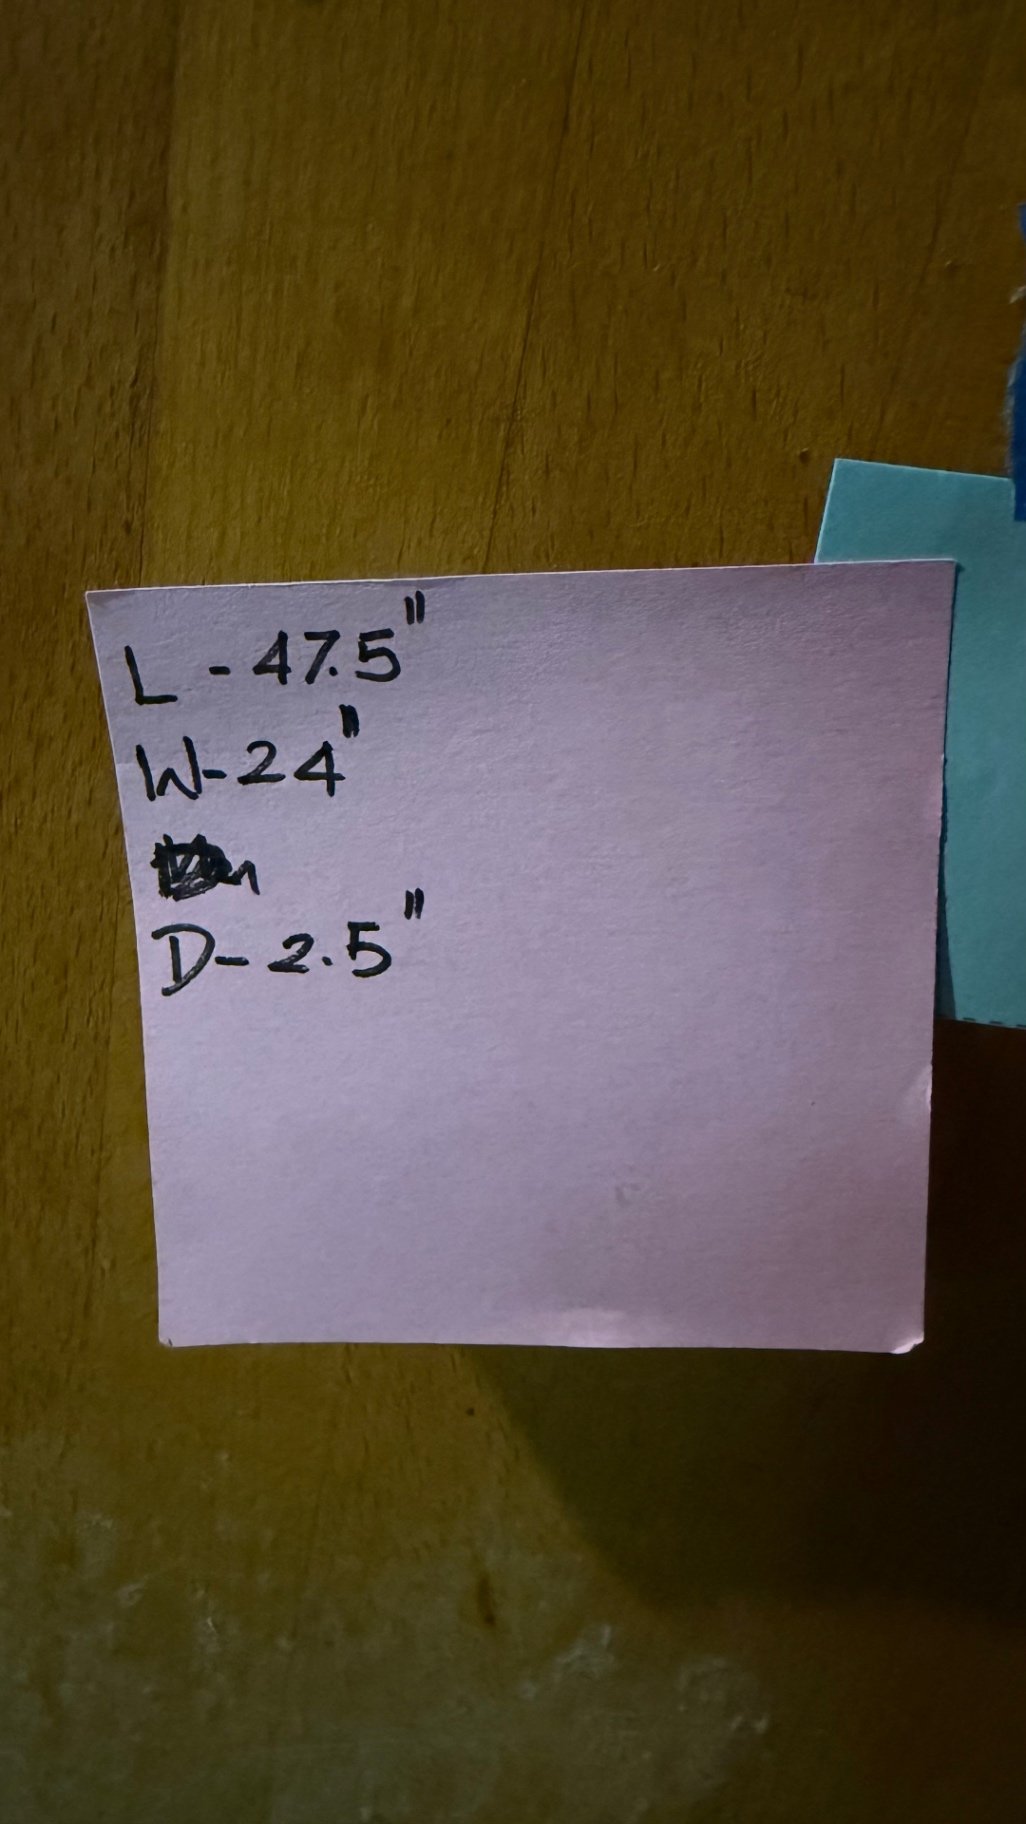 L - 47.5"
W- 24"
D- 2.5"